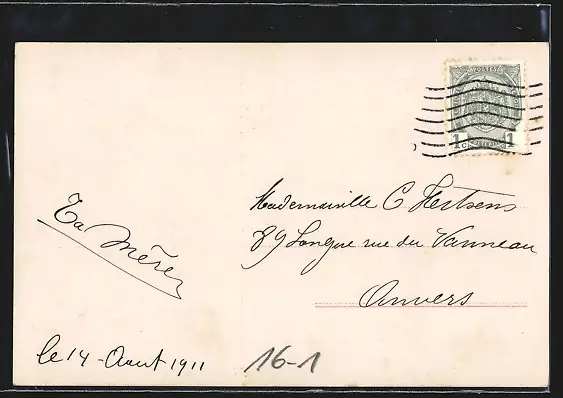 POSTES
1 CENTIME 1
Mademoiselle C Hertsens
89 Longue rue du Vanneau
Anvers
Ta Mère
le 14 - Aout 1911
16-1